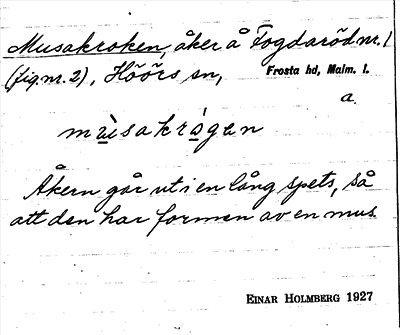 Musakroken, åker å Fogdaröd nr. 1
(fig. nr. 2), Höörs sn, Frosta hd, Malm. l.
a.
mùsakrógen
Åkern går ut i en lång spets, så
att den har formen av en mus.
EINAR HOLMBERG 1927